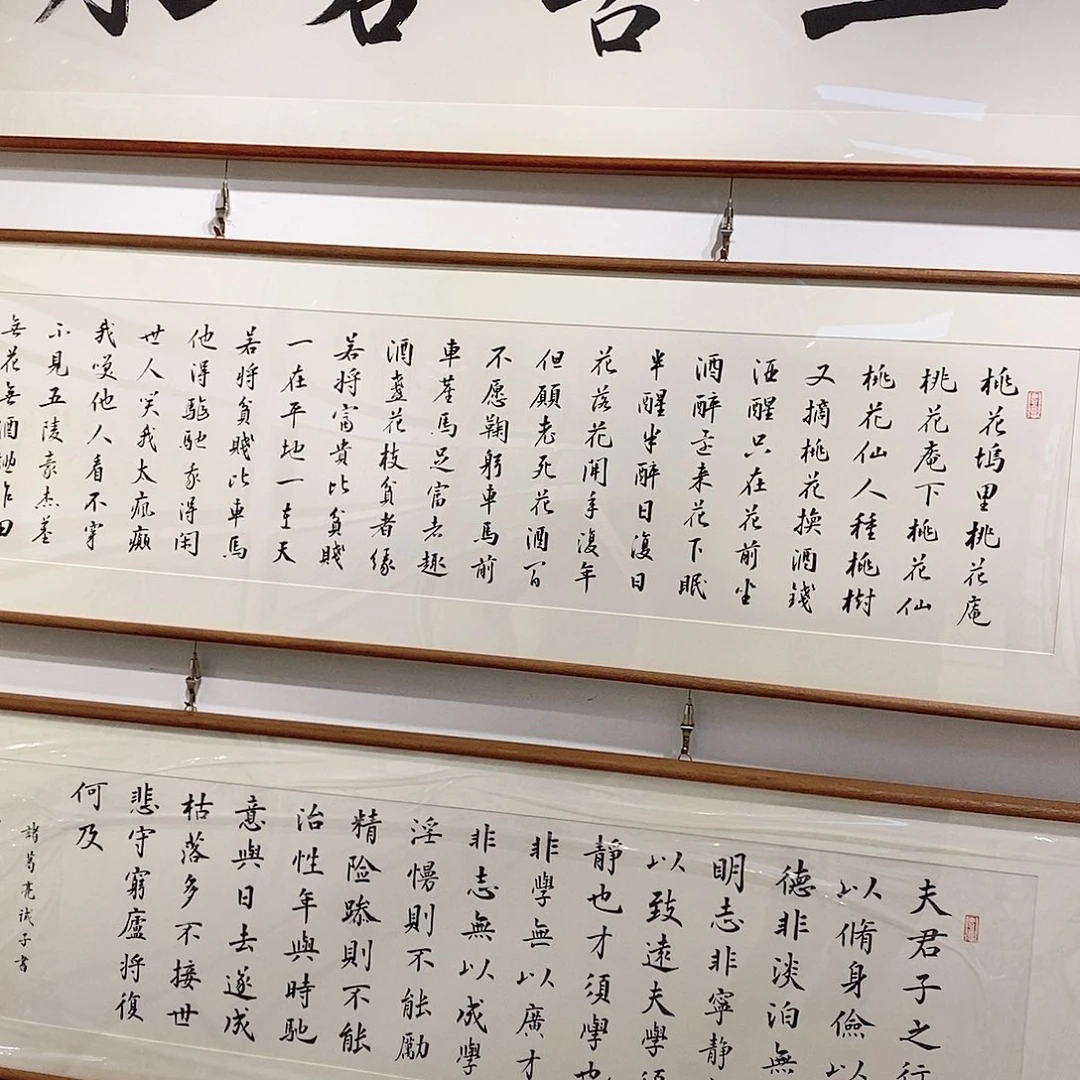 桃花塢里桃花庵
桃花庵下桃花仙
桃花仙人種桃樹
又摘桃花換酒錢
酒醒只在花前坐
酒醉还来花下眠
半醒半醉日復日
花落花開年復年
但願老死花酒间
不愿鞠躬車馬前
車塵馬足富者趣
酒盞花枝貧者緣
若将富貴比貧賤
一在平地一在天
若将貧賤比車馬
他得驅馳我得閑
世人笑我太瘋癲
我笑他人看不穿
不見五陵豪杰墓
無花無酒鋤作田
夫君子之行
以脩身儉以
德非淡泊無
明志非寧靜
以致遠夫學須
靜也才須學也
非學無以廣才
非志無以成學
淫慢則不能勵
精险躁則不能
治性年與時馳
意與日去遂成
枯落多不接世
悲守窮廬将復
何及
諸葛亮诫子書